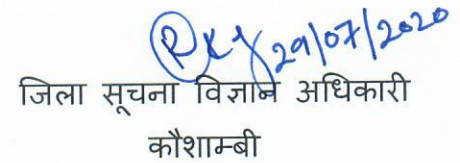 29/07/2020
जिला सूचना विज्ञान अधिकारी
कौशाम्बी